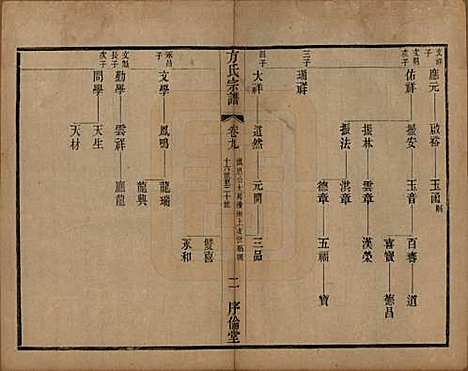 應元 啟裕 玉函
佑祥 振安 玉音 百壽 道
喜寶 德昌
振林 雲章 漢榮
振法 洪章
德章 五福 寶
三子 瑞祥
四子 大祥 道然 元開 三品
方氏宗譜
卷九
十六世至二十世
二 序倫堂
雙喜
永和
文學 鳳鳴 龍瑞
龍興
勤學 雲祥 應龍
問學 天生
天材